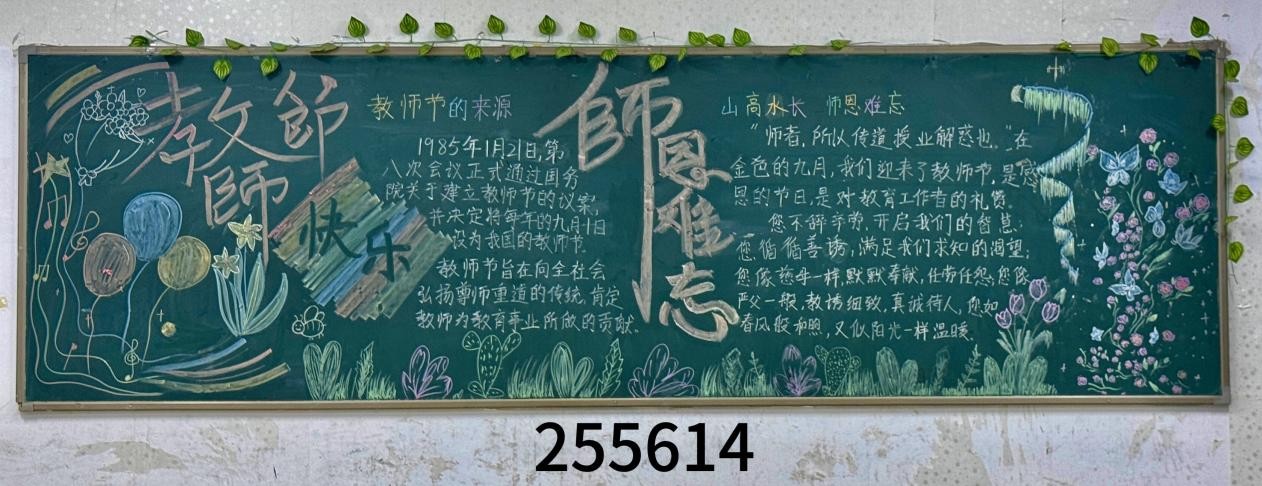 教師節
快乐
教师节的来源
1985年1月21日,第
八次会议正式通过国务
院关于建立教师节的议案,
并决定将每年的九月十日
设为我国的教师节.
教师节旨在向全社会
弘扬尊师重道的传统,肯定
教师为教育事业所做的贡献.
師恩难忘
山高水长 师恩难忘
"师者,所以传道授业解惑也."在
金色的九月,我们迎来了教师节,是感
恩的节日,是对教育工作者的礼赞.
您不辞辛劳,开启我们的智慧.
您循循善诱,满足我们求知的渴望;
您像慈母一样,默默奉献,任劳任怨;您像
严父一般,教诲细致,真诚待人,您如
春风般和煦,又似阳光一样温暖.
255614